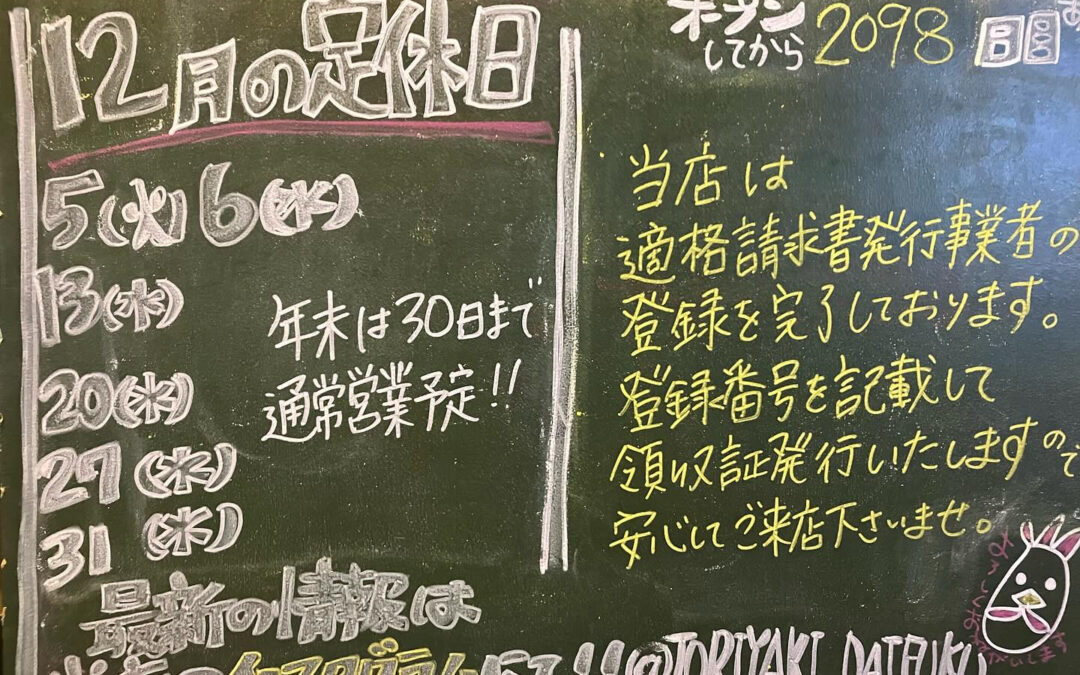 12月の定休日
5(火)6(水)
13(水)
20(水)
27(水)
31(水)
年末は30日まで
通常営業予定!!
最新の情報は
オープン
してから2098日目
当店は
適格請求書発行事業者の
登録を完了しております。
登録番号を記載して
領収証発行いたしますので
安心してご来店下さいませ。
@TORIYAKI_DAIFUKU